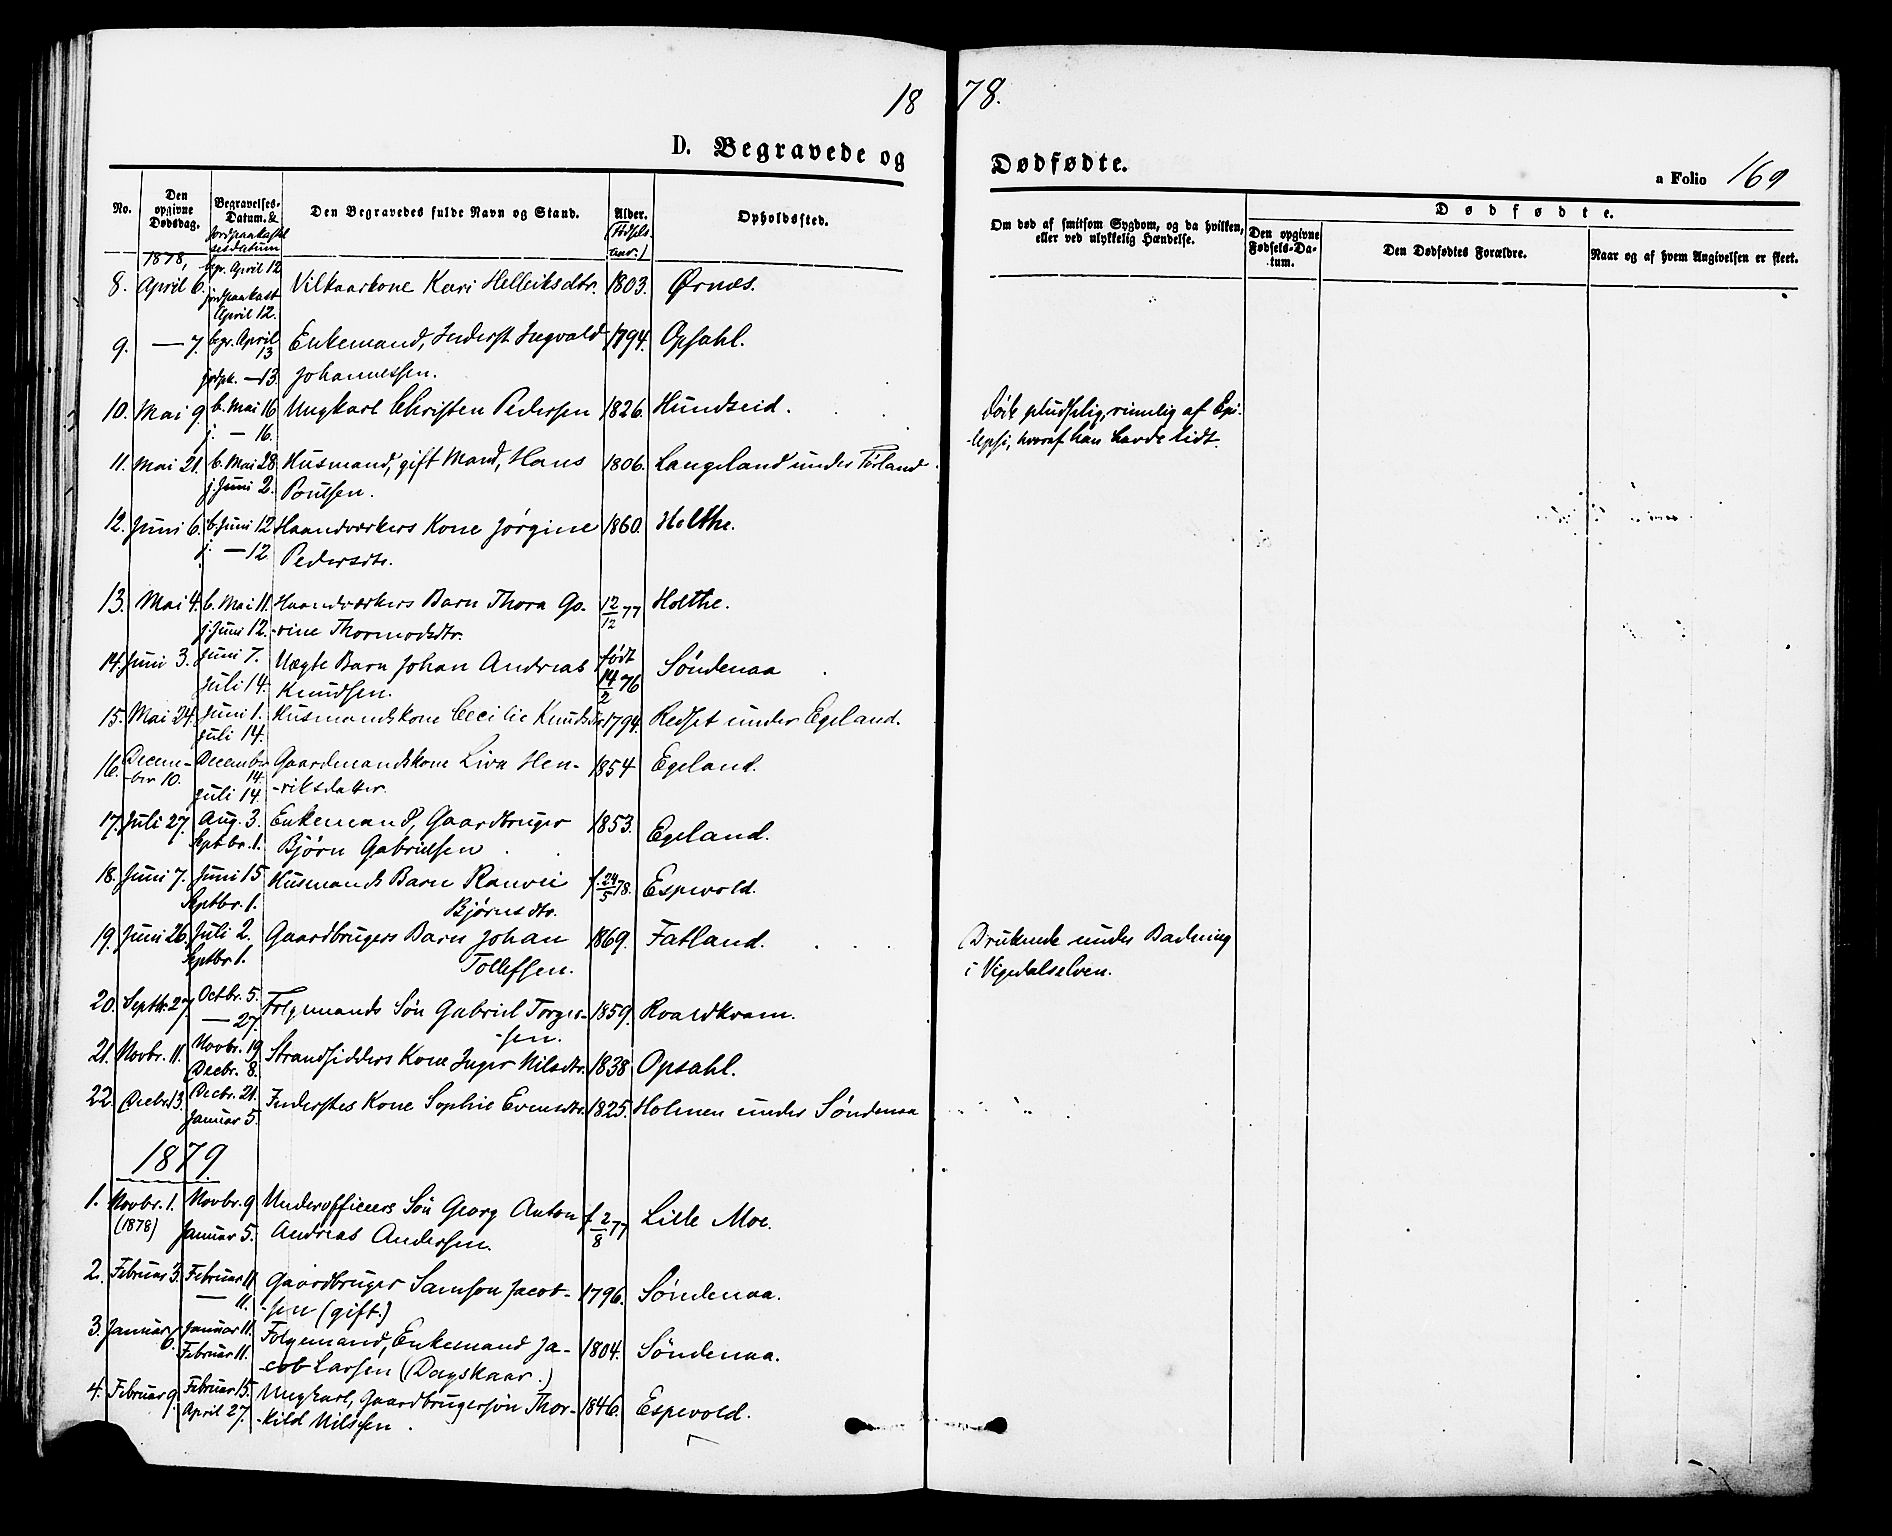 18 78.
D. Begravede og Dødfødte.
a Folio 169
No.
Den opgivne Dødsdag.
Begravelses-Datum. & Jordpaakastelsesdatum
Den Begravedes fulde Navn og Stand.
Alder. (Fødselsaar.)
Opholdssted.
Om død af smitsom Sygdom, og da hvilken, eller ved ulykkelig Hændelse.
Dødfødte.
Den opgivne Fødsels-Datum.
Den Dødfødtes Forældre.
Naar og af hvem Angivelsen er skeet.
1878,
8. April 6. begr. April 12 Vilkaarkone Kari Helleiksdtr. 1803. Ørnes.
jordpaakast April 12.
9. — 7. begr. April 13 Enkemand, Inderst Ingvald 1794. Opsahl.
jordpk. — 13. Johannessen.
10. Mai 9. b. Mai 16 Ungkarl Christen Pedersen 1826. Hundseid. Døde pludselig, rimelig af Epi-
j. — 16. -lepsi, hvoraf han havde lidt.
11. Mai 21. b. Mai 28. Husmand, gift Mand, Hans 1806. Langeland under Førland.
j. Juni 2. Poulsen.
12. Juni 6. b. Juni 12 Haandværkers Kone Jørgine 1860. Holthe.
j. — 12 Pedersdtr.
13. Mai 4. b. Mai 11. Haandværkers Barn Thora Go- 12/12 77 Holthe.
j. Juni 12. -rine Thormodsdtr.
14. Juni 3. Juni 7. Uægte Barn Johan Andreas født 14/2 76 Søndenaa
Juli 14. Knudsen.
15. Mai 24. Juni 1. Husmandskone Cecilie Knudsdtr 1794. Redset under Egeland.
Juli 14.
16. Decem- December 14. Gaardmandskone Liva Hen- 1854 Egeland.
-ber 10. Juli 14. -riksdatter.
17. Juli 27. Aug. 3. Enkemand, Gaardbruger 1853. Egeland.
Septbr. 1. Bjørn Gabrielsen
18. Juni 7. Juni 15 Husmands Barn Ranvei f. 24/5 78. Espevold.
Septbr. 1. Bjørnsdtr.
19. Juni 26. Juli 2. Gaardbrugers Barn Johan 1869. Fatland. Druknede under Badning
Septbr 1. Tollefsen. i Vigedalselven.
20. Septbr. 27. Octbr. 5. Folgemands Søn Gabriel Torger- 1859. Roaldkvam.
— 27. -sen.
21. Novbr. 11. Novbr. 19 Strandsidders Kone Inger Nilsdtr. 1838 Opsahl.
Decbr. 8.
22. Decbr 13. Decbr. 21. Inderstes Kone Sophie Evensdtr. 1825. Holmen under Søndenaa
Januar 5.
1879.
1. Novbr. 1. Novbr. 9 Underofficers Søn Georg Anton f. 2/8 77 Lille Moe.
(1878) Januar 5. Andreas Andersen.
2. Februar 3. Februar 11 Gaardbruger Samson Jacob- 1796. Søndenaa.
— 11. -sen (gift.)
3. Januar 6. Januar 11. Folgemand, Enkemand Ja- 1804. Søndenaa.
Februar 11. -cob Larsen (Dagskaar.)
4. Februar 9. Februar 15. Ungkarl, Gaardbrugersøn Thor- 1846. Espevold.
April 27. -kild Nilssen.